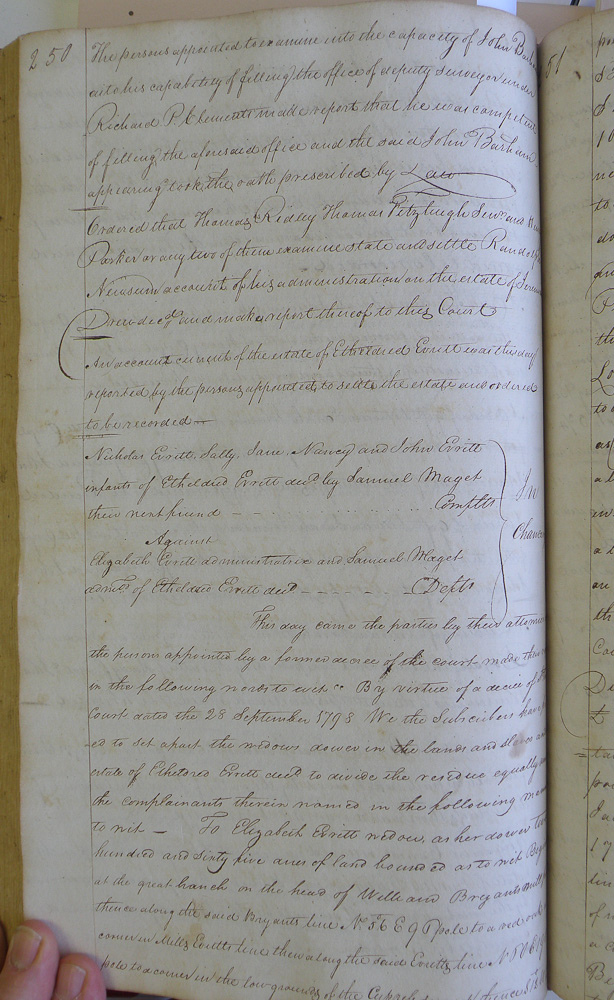 250
The persons appointed to examine into the capacity of John Barham
as to his capability of filling the office of deputy surveyor under
Richard P. Clements made report that he was competent
of filling the aforesaid office and the said John Barham
appearing took the oath prescribed by Law
Ordered that Thomas Ridley Thomas Fitzhugh Senr. and
Parker or any two of them examine state and settle Randolph
Newsum account of his administration on the estate of
Drew decd. and make report thereof to this Court
An account current of the estate of Etheldred Evritt was this day
reported by the persons appointed to settle the estate and ordered
to be recorded
Nicholas Evritt, Sally, Jane, Nancy and John Evritt
infants of Etheldred Evritt decd by Samuel Maget
their next friend Complts
In
Against
Chancery
Elizabeth Evritt administratrix and Samuel Maget
admr. of Etheldred Evritt decd Defts
This day came the parties by their attornies
the persons appointed by a former decree of the court made
in the following words to wit By virtue of a decree of
Court dated the 28 September 1798 We the Subscribers
ed to set apart the widows dower in the lands and slaves
estate of Etheldred Evritt decd to divide the residue equally
the complainants therein named in the following
to wit To Elizabeth Evritt widow, as her dower two
hundred and sixty five acres of land bounded as to wit
at the great branch on the head of Will and Bryants mill
thence along the said Bryants line No. 36 E 9 pole to a red oak
corner in Mills Evritts line then along the said Evritts line N
pole to a corner in the low grounds of the Cypress thence